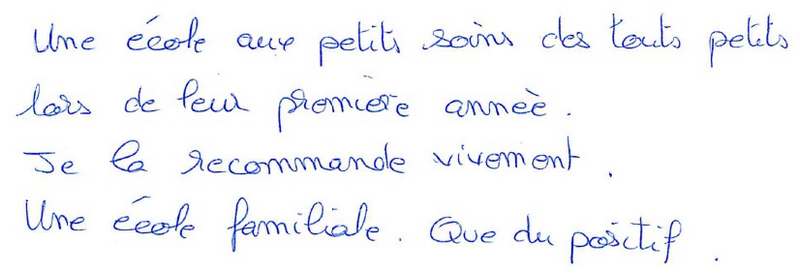 Une école aux petits soins des touts petits
lors de leur première année.
Je la recommande vivement.
Une école familiale. Que du positif.